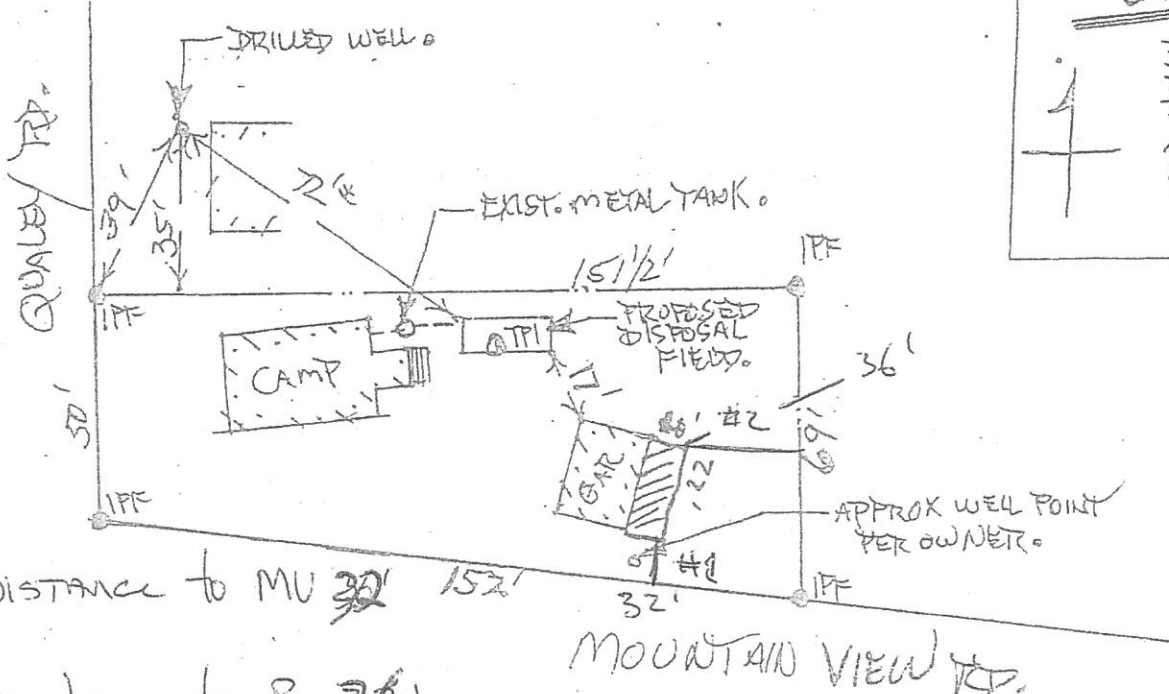 DRILLED WELL.
QUALEY RD.
39'
35'
EXIST. METAL TANK.
151 1/2'
IPF
IPF
PROPOSED
DISPOSAL
FIELD.
TP1
CAMP
17'
36'
50'
#2
69'
GAR
22
IPF
APPROX WELL POINT
PER OWNER.
#1
DISTANCE to MV 32' 152'
32'
IPF
MOUNTAIN VIEW RD.